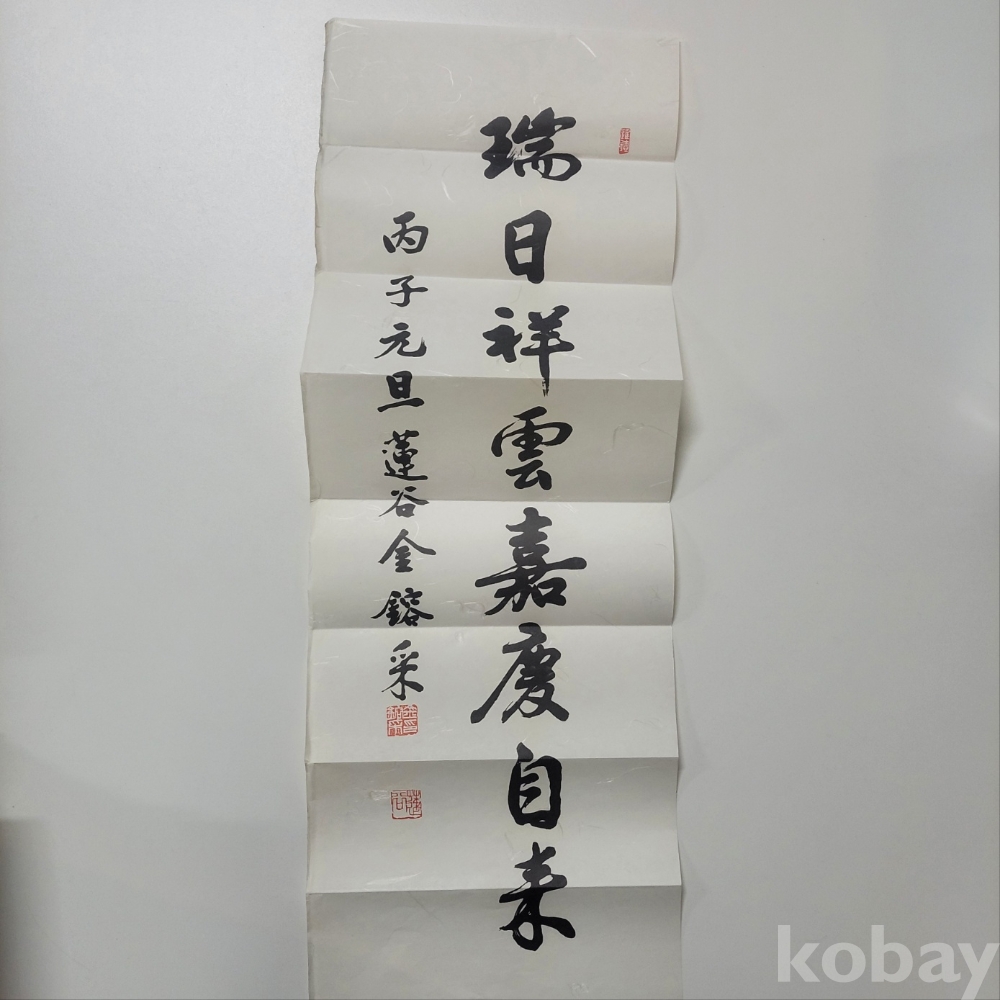 瑞日祥雲嘉慶自来
丙子元旦蓮谷金鎔采
kobay